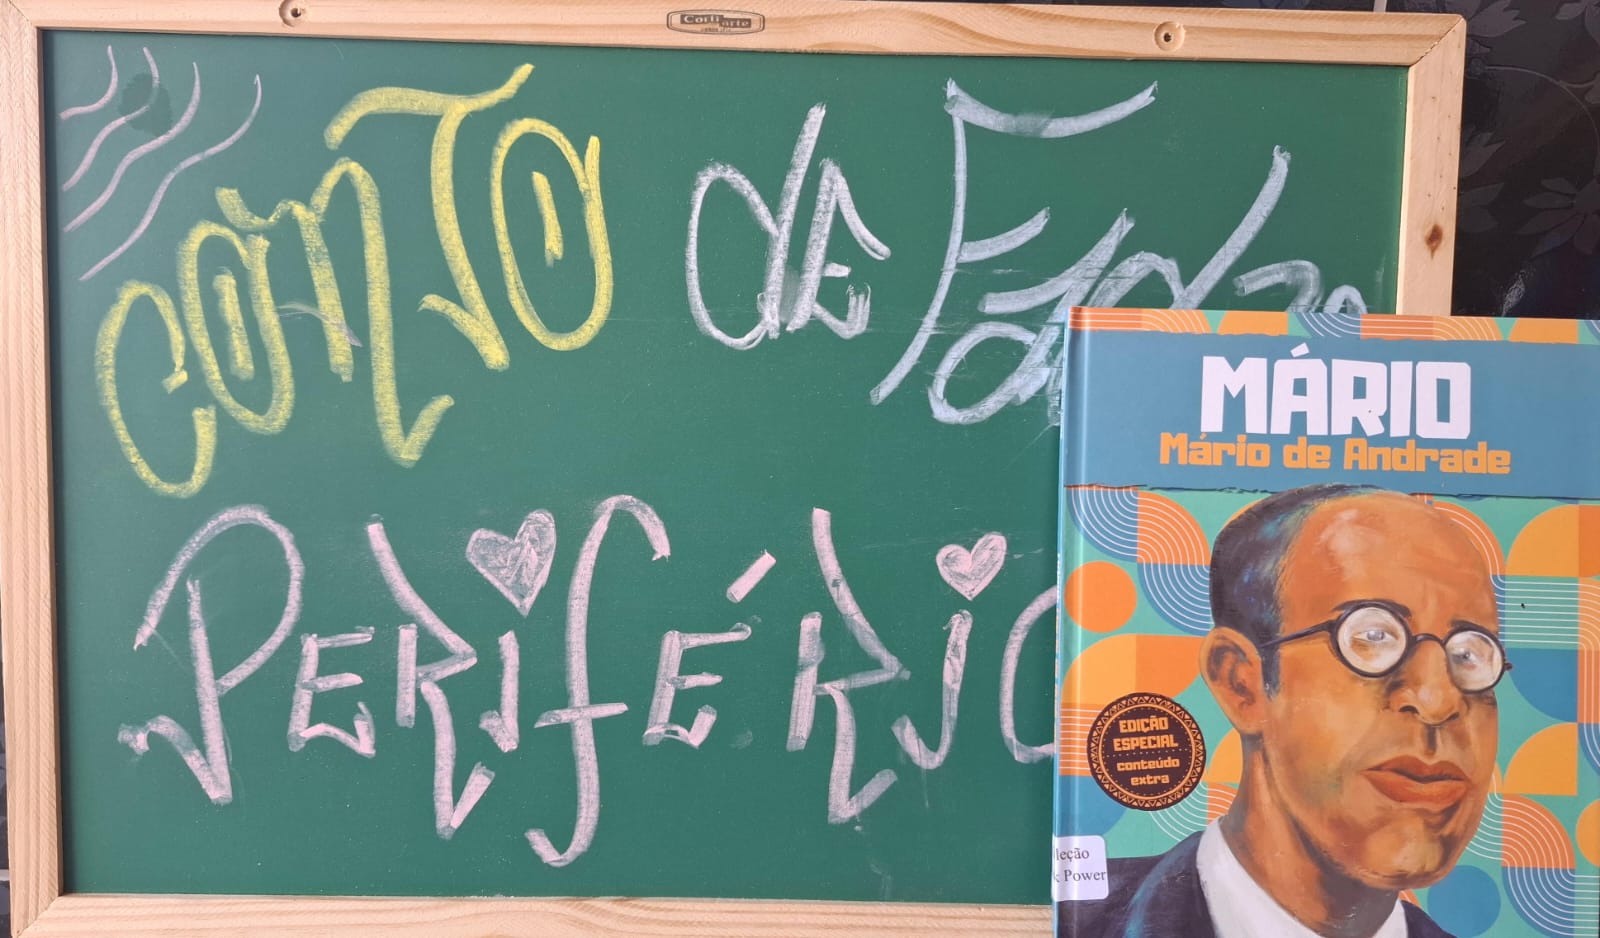 CONTO dE Fada
PERIFÉRIC
MÁRIO
Mário de Andrade
EDIÇÃO
ESPECIAL
conteúdo
extra
leção
k Power